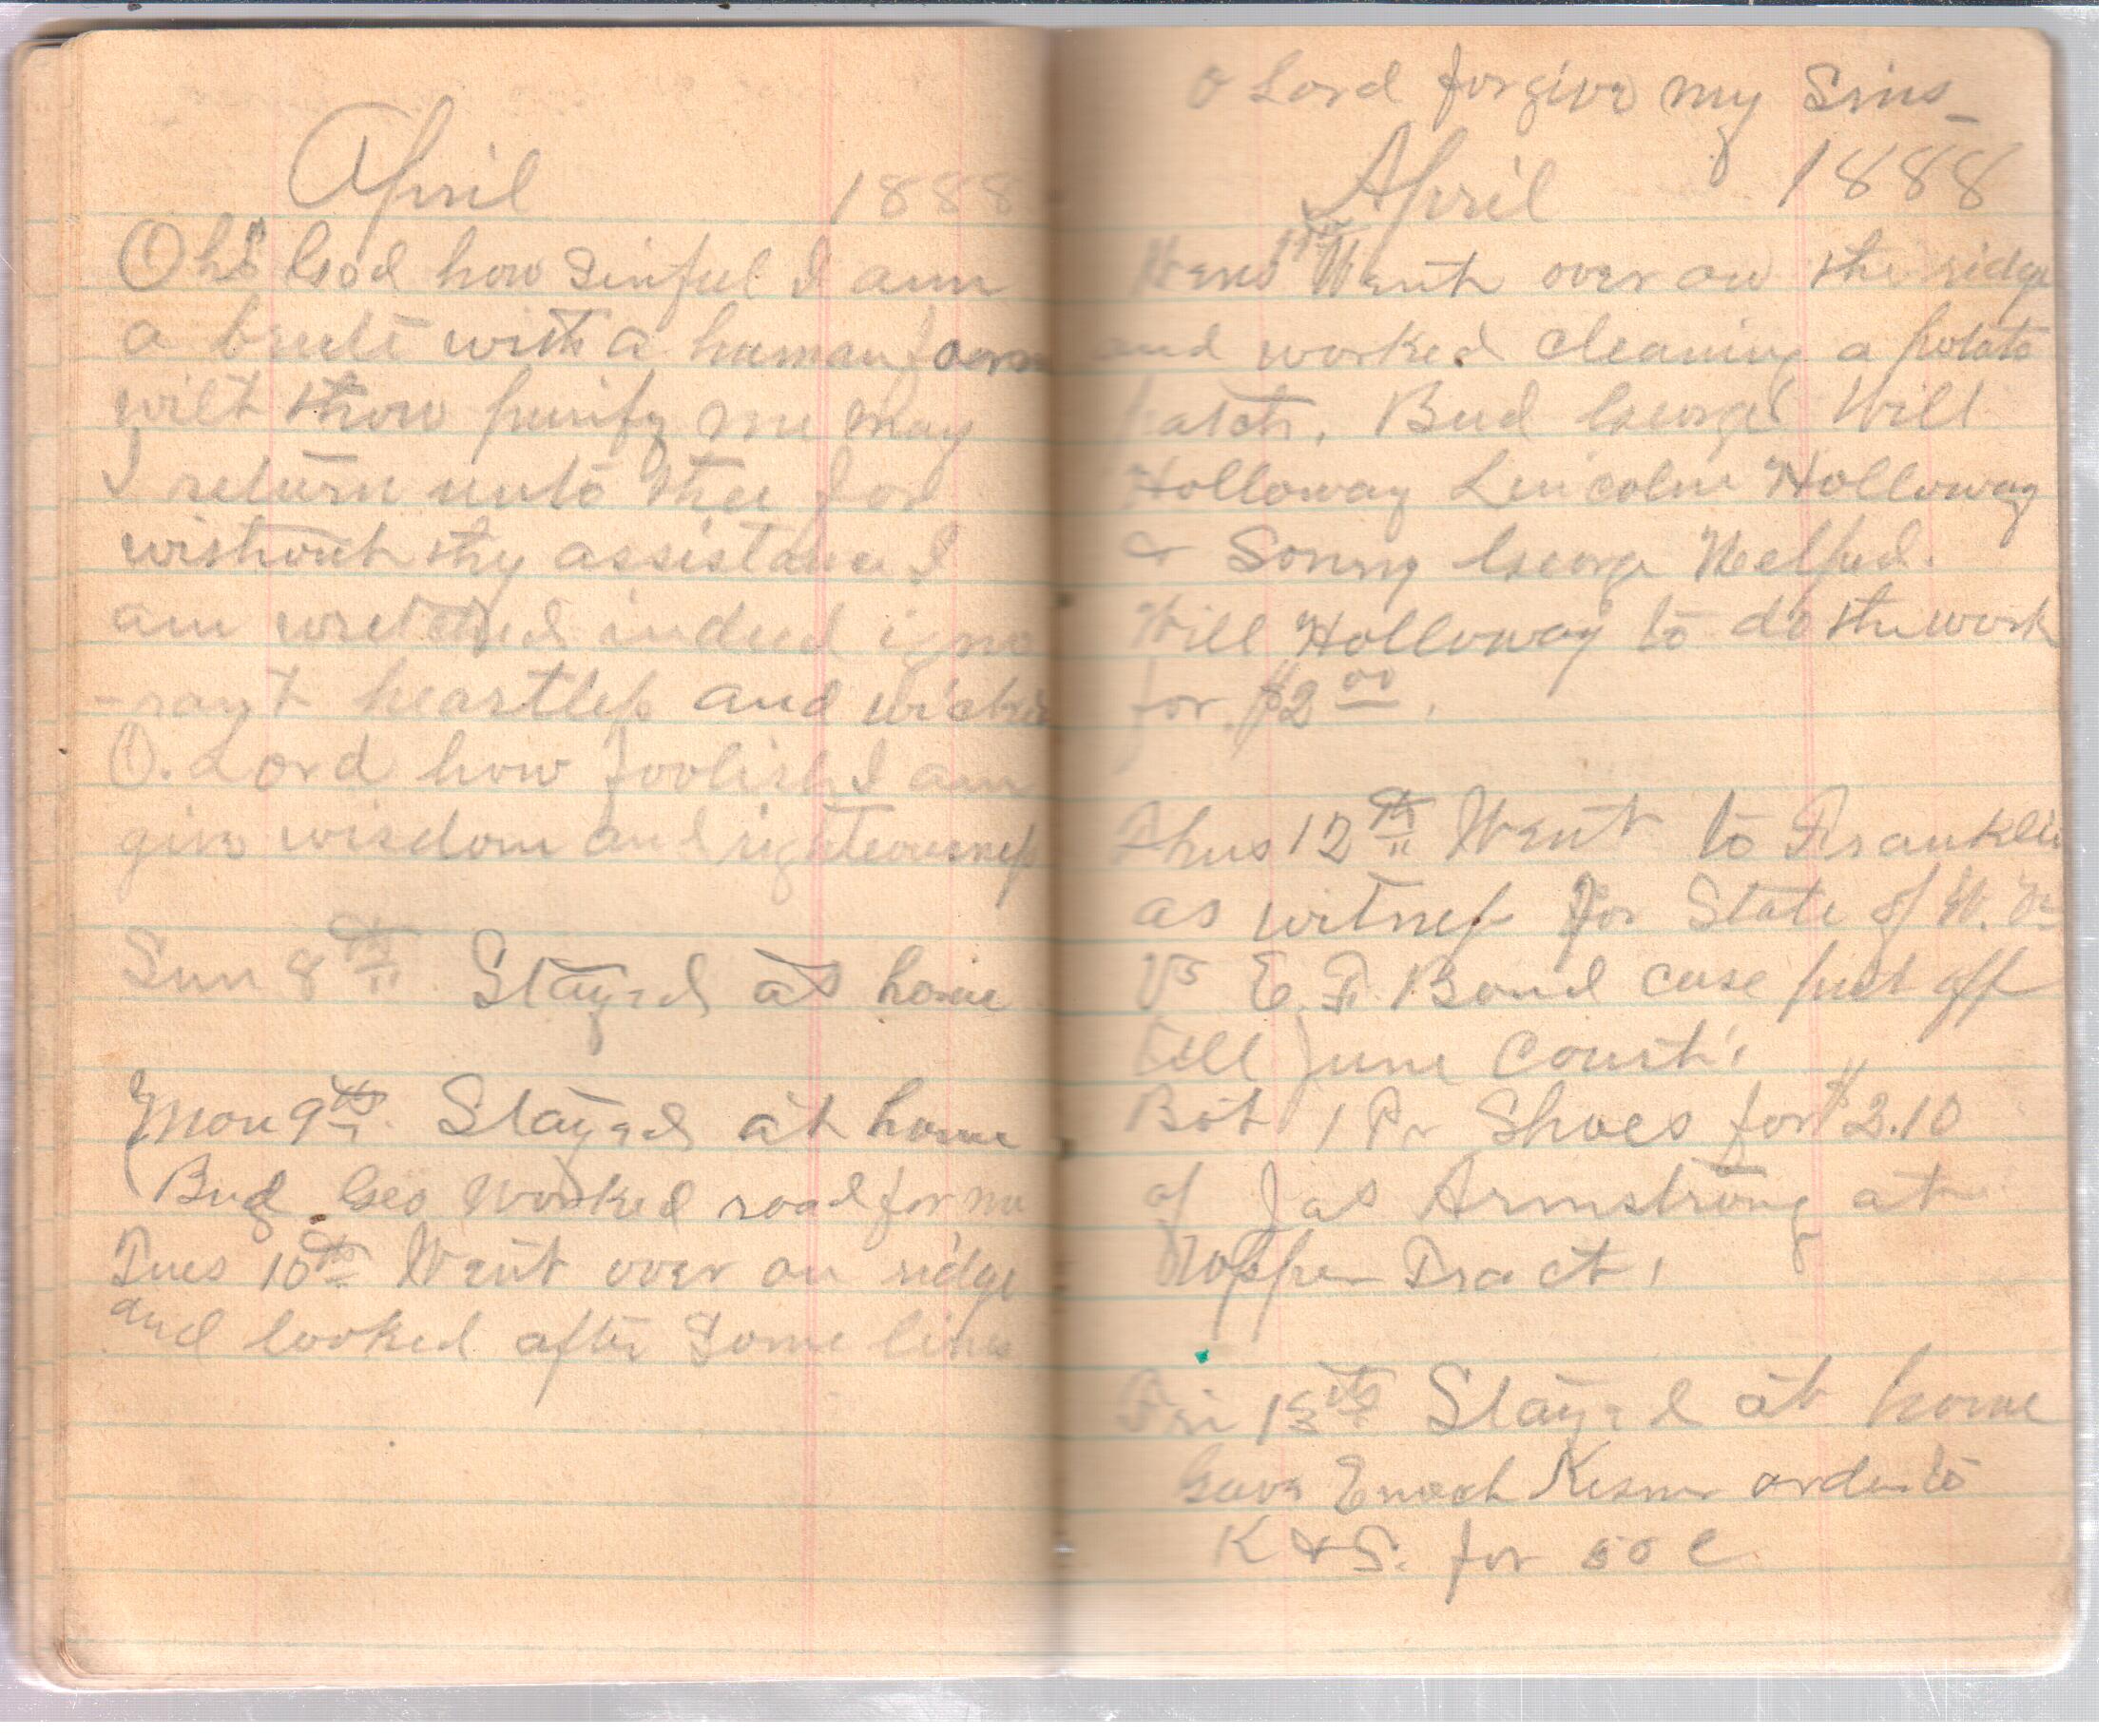 April 1888
Oh! God how sinful I am
a brute with a human form
wilt thow purify me may
I return unto thee for
without thy assistance I
am wretched indeed igno
-rant heartless and wicked
O. Lord how foolish I am
give wisdom and righteousness
Sun 8th Stayed at home
Mon 9th Stayed at home
Bud Geo Worked road for me
Tues 10th Went over on ridge
and looked after Some lines
O Lord forgive my Sins
April 1888
Wens 11th Went over on the ridge
and worked cleaning a potato
patch. Bud George Will
Holloway Lincoln Holloway
& Sonny George Helped.
Will Holloway to do the work
for $2 00.
Thus 12th Went to Franklin
as witness for State of W. Va
Vs E. F. Bond case put off
till June Court.
Bot 1 Pr Shoes for $2.10
of Jas Armstrong at
Upper Tract.
Fri 13th Stayed at home
Gave Enoch Kesner order to
K & S. for 50 c